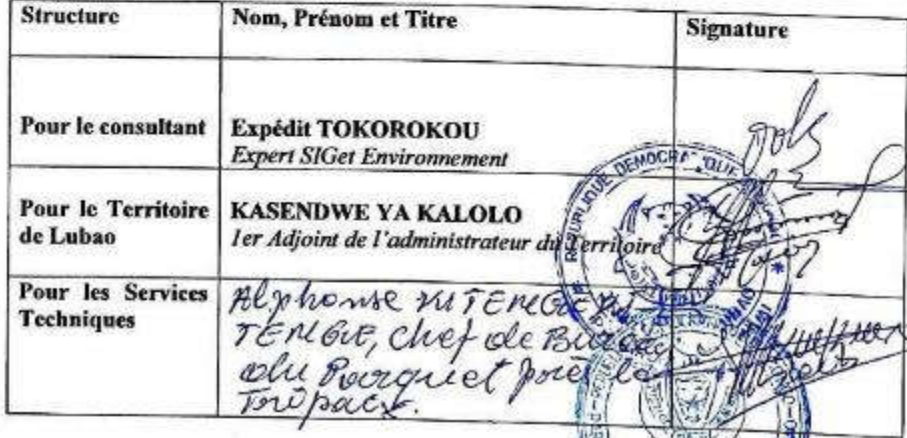 Structure
Nom, Prénom et Titre
Signature
Pour le consultant
Expédit TOKOROKOU
Expert SIGet Environnement
Pour le Territoire
de Lubao
KASENDWE YA KALOLO
1er Adjoint de l'administrateur du Territoire
REPUBLIQUE DEMOCRATIQUE
Pour les Services
Techniques
Alphonse
TENGIE, Chef de Bureau
du Parquet près le
Tripaix.